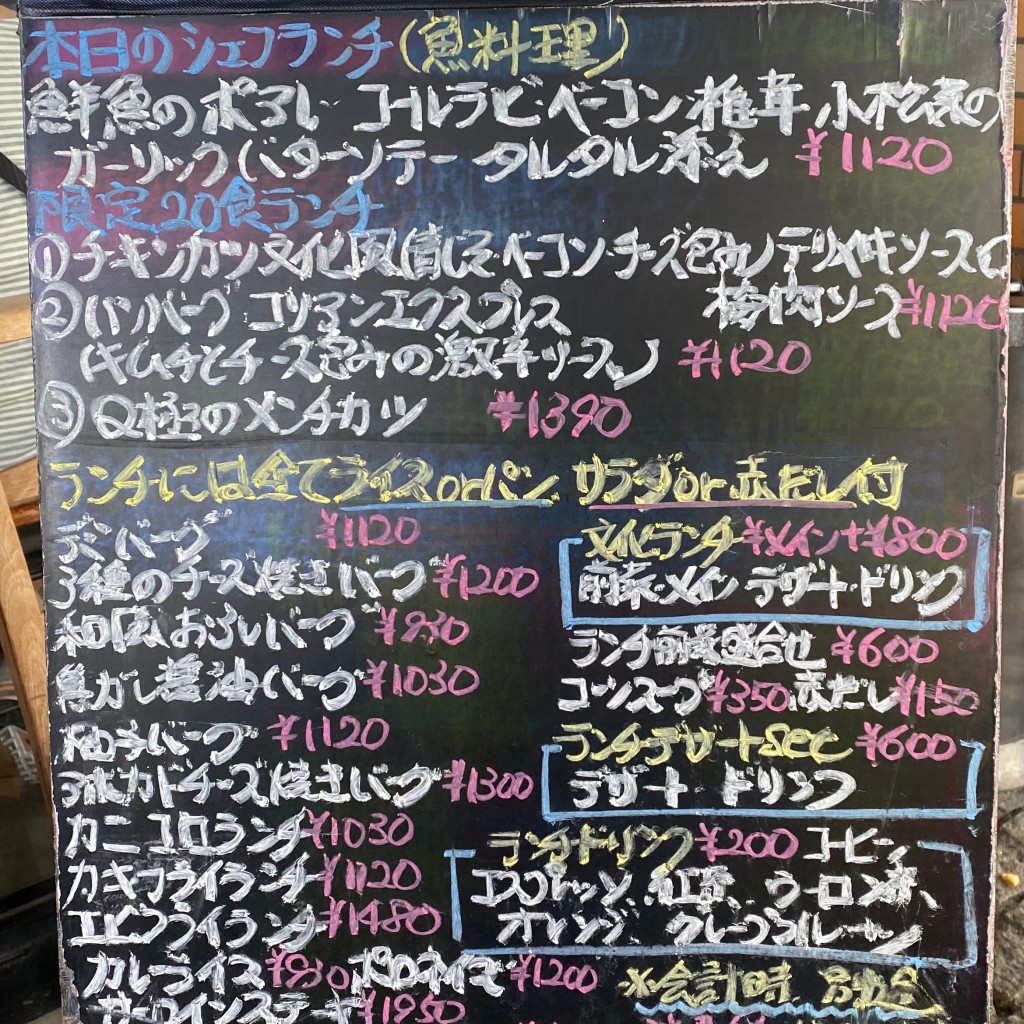 本日のシェフランチ(魚料理)
鮮魚のポアレ コールラビ・ベーコン 椎茸 小松菜の
ガーリックバターソテー タルタル添え ¥1120
限定20食ランチ
①チキンカツ文化風(青じそ・ベーコン・チーズ包み)テリヤキソース
梅肉ソース ¥1120
②ハンバーグ コリアンエクスプレス
(キムチとチーズ包みの激辛ソース) ¥1120
③Q極のメンチカツ ¥1390
ランチには全てライスorパン サラダor赤だし付
デミバーグ ¥1120
3種のチーズ焼きバーグ ¥1200
和風おろしバーグ ¥930
焦がし醤油バーグ ¥1030
柚子バーグ ¥1120
アボカドチーズ焼きバーグ ¥1300
カニコロランチ ¥1030
カキフライランチ ¥1120
エビフライランチ ¥1480
カレーライス ¥930 ボロネイズ ¥1200
サーロインステーキ ¥1950
文化ランチ ¥メイン+¥800
前菜・メイン デザート・ドリンク
ランチ前菜盛合せ ¥600
コーンスープ ¥350 赤だし ¥150
ランチデザートset ¥600
デザート ドリンク
ランチドリンク ¥200 コーヒー、
エスプレッソ、紅茶、ウーロン茶、
オレンジ グレープフルーツ
※会計時